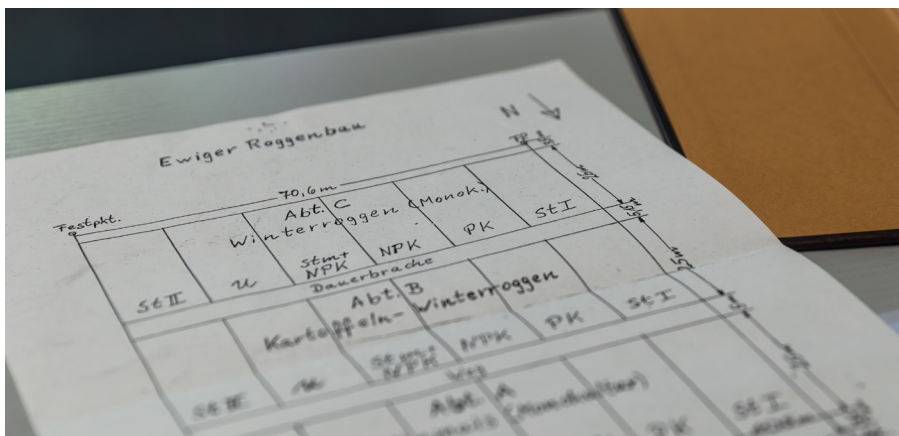 N
Ewiger Roggenbau
70,6m
Festpkt.
Abt. C
Winterroggen (Monok.)
St II
U
Stm+
NPK
NPK
PK
St I
Dauerbrache
Abt. B
Kartoffeln- Winterroggen
St II
U
Stm+
NPK
NPK
PK
St I
Weg
Abt. A
PK
St I